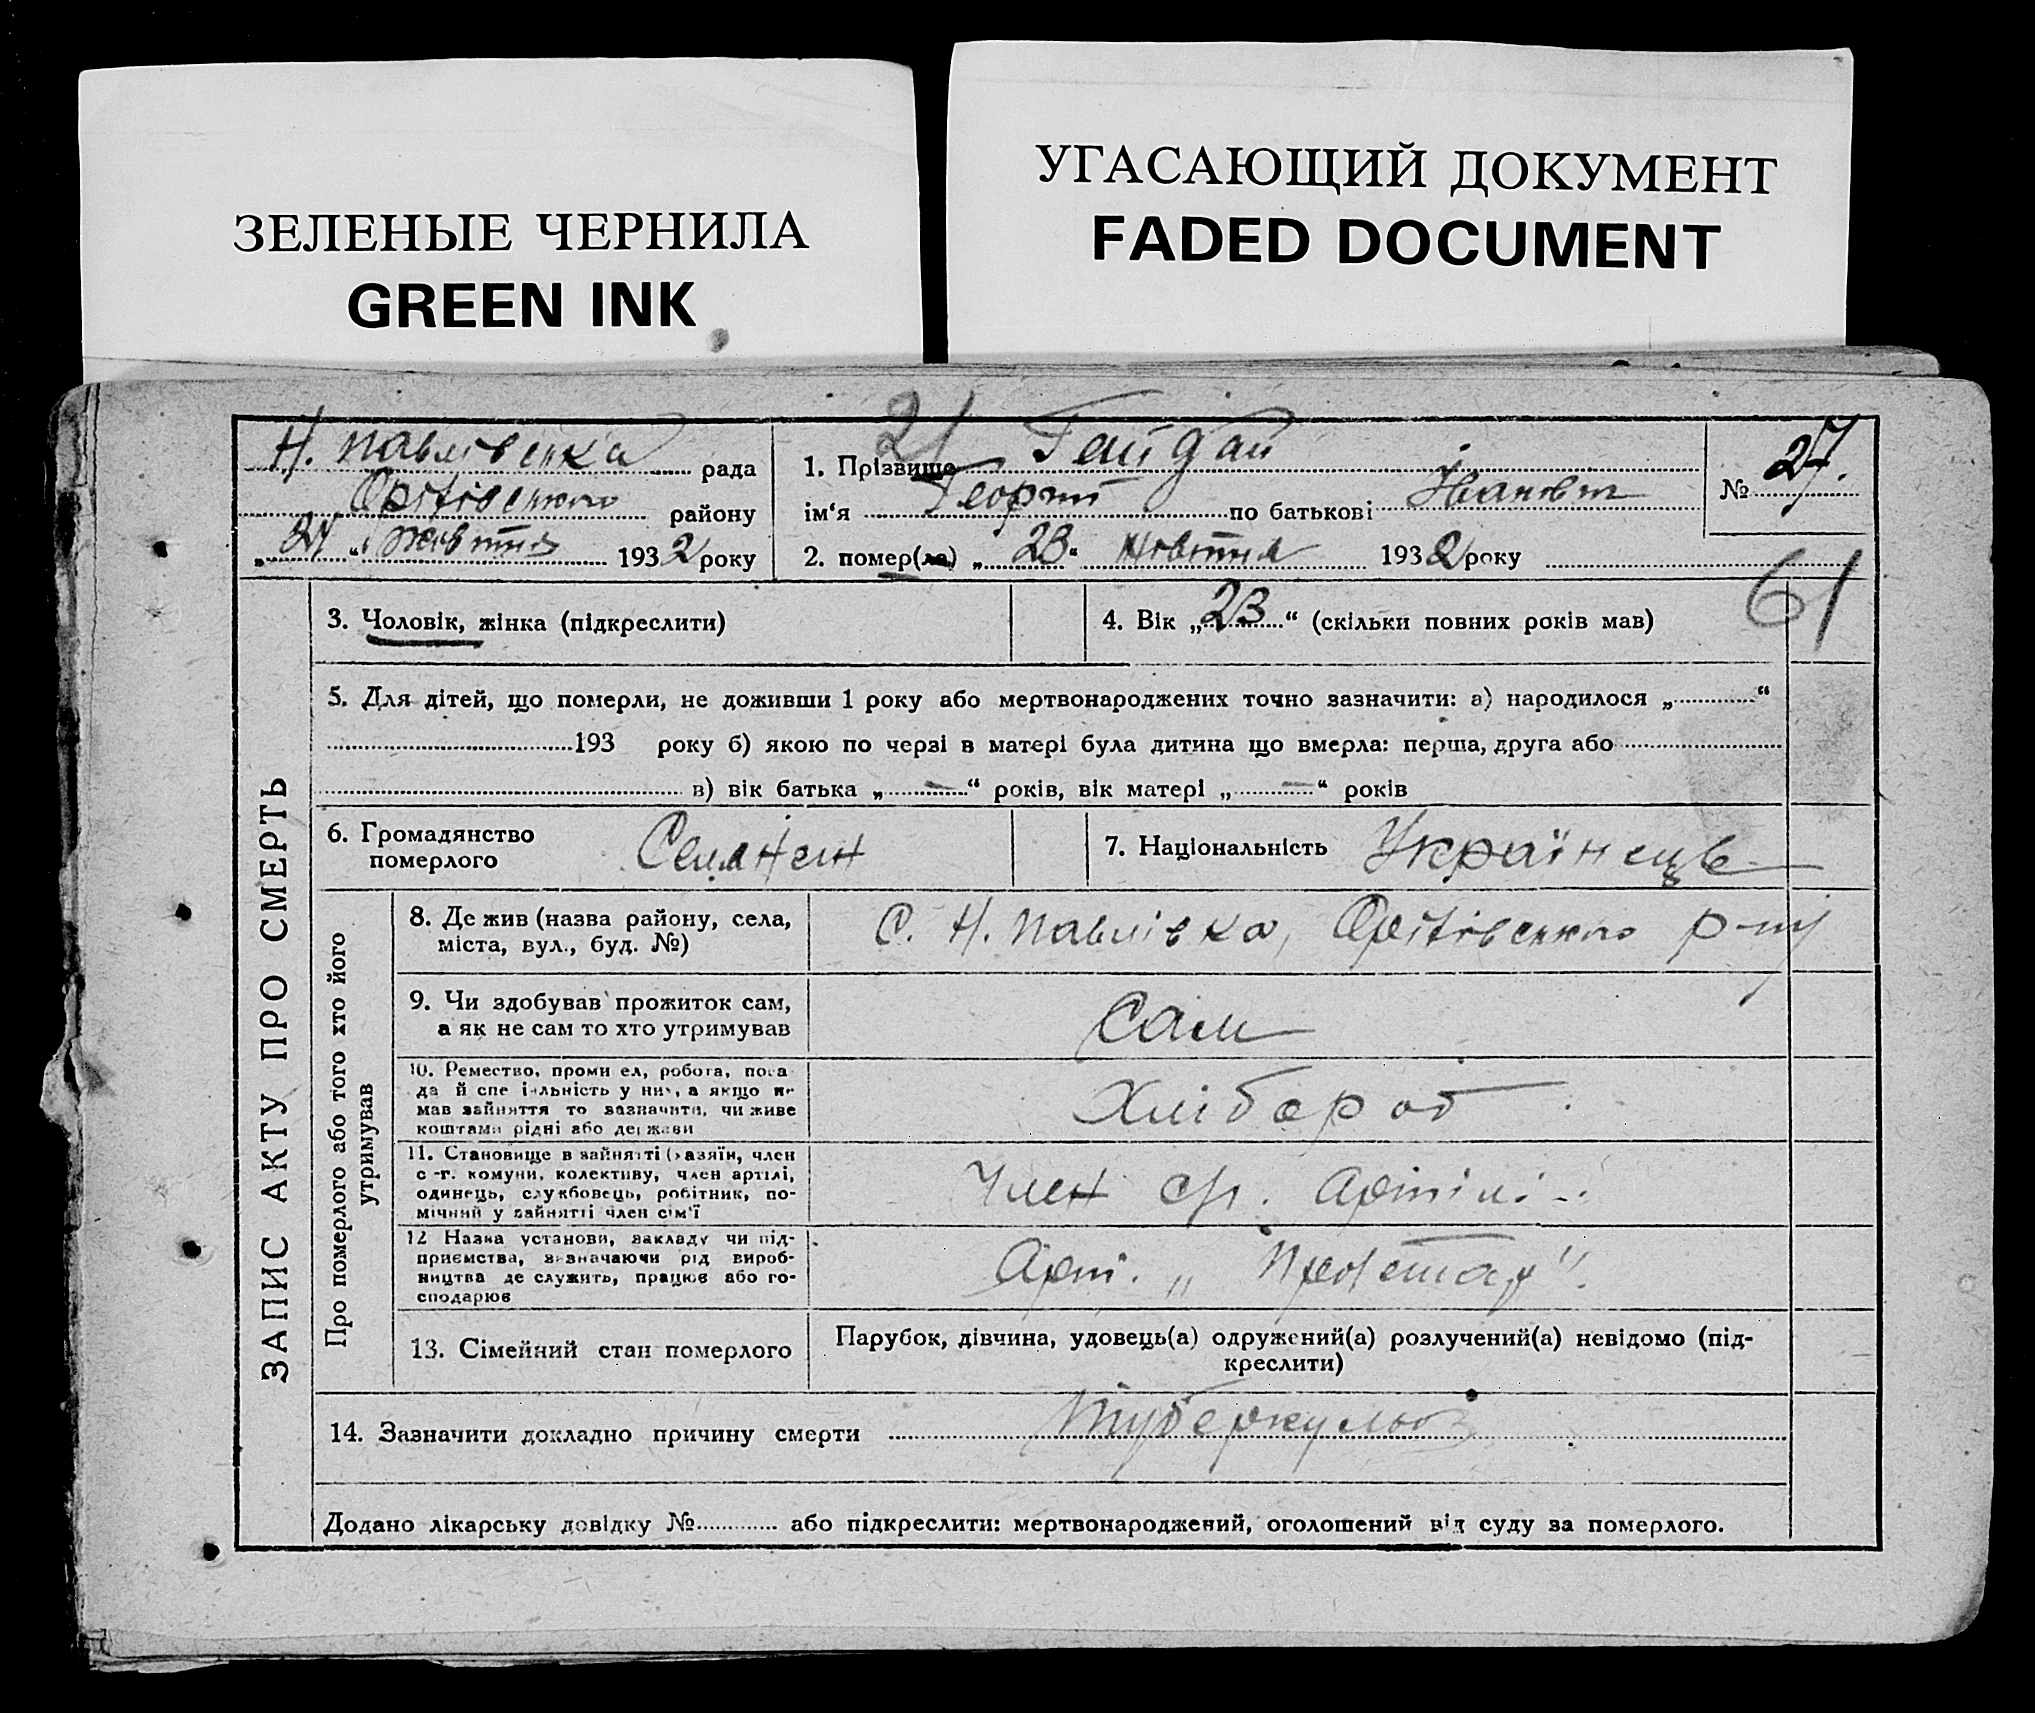 ЗЕЛЕНЫЕ ЧЕРНИЛА
GREEN INK
УГАСАЮЩИЙ ДОКУМЕНТ
FADED DOCUMENT
21
Н. Павлівська рада
Оріхівського району
„ 24 “ жовтня 1932 року
1. Прізвище Гайдай
ім‘я Георгій по батькові Іванович
2. помер(ла) „ 23 “ жовтня 1932 року
№ 27.
61
ЗАПИС АКТУ ПРО СМЕРТЬ
3. Чоловік, жінка (підкреслити)
4. Вік „ 23 “ (скільки повних років мав)
5. Для дітей, що померли, не доживши 1 року або мертвонароджених точно зазначити: а) народилося „ “
193 року б) якою по черзі в матері була дитина що вмерла: перша, друга або
в) вік батька „ — “ років, вік матері „ — “ років
6. Громадянство
померлого
7. Національність Українець
Про померлого або того хто його
утримував
8. Де жив (назва району, села,
міста, вул., буд. №)
С. Н. Павлівка, Оріхівського р-ну
9. Чи здобував прожиток сам,
а як не сам то хто утримував
Сам
10. Ремество, проми ел, робота, поса
да й спе іальність у них, а якщо не
мав зайняття то зазначити, чи живе
коштами рідні або держави
Хлібороб.
11. Становище в зайнятті (хазяїн, член
с-г. комуни, колективу, член артілі,
одинець, службовець, робітник, по-
мічний у зайнятті член сім'ї
Член с/г. Артілі
12 Назва установи, закладу чи під-
приємства, зазначаючи рід вироб-
ництва де служить, працює або го-
сподарює
Арт. „Пролетар“.
13. Сімейний стан померлого
Парубок, дівчина, удовець(а) одружений(а) розлучений(а) невідомо (під-
креслити)
14. Зазначити докладно причину смерти Туберкульоз
Додано лікарську довідку № або підкреслити: мертвонароджений, оголошений від суду за померлого.